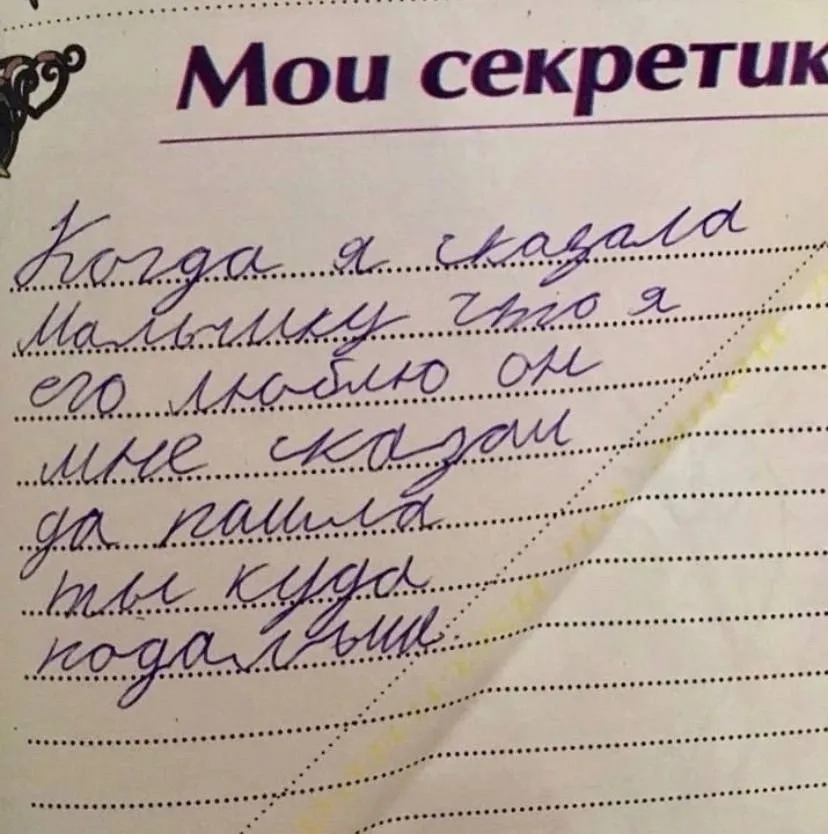 Мои секретик
Когда я сказала
мальчику что я
его люблю он
мне сказал
да пашла
ты куда
подальше